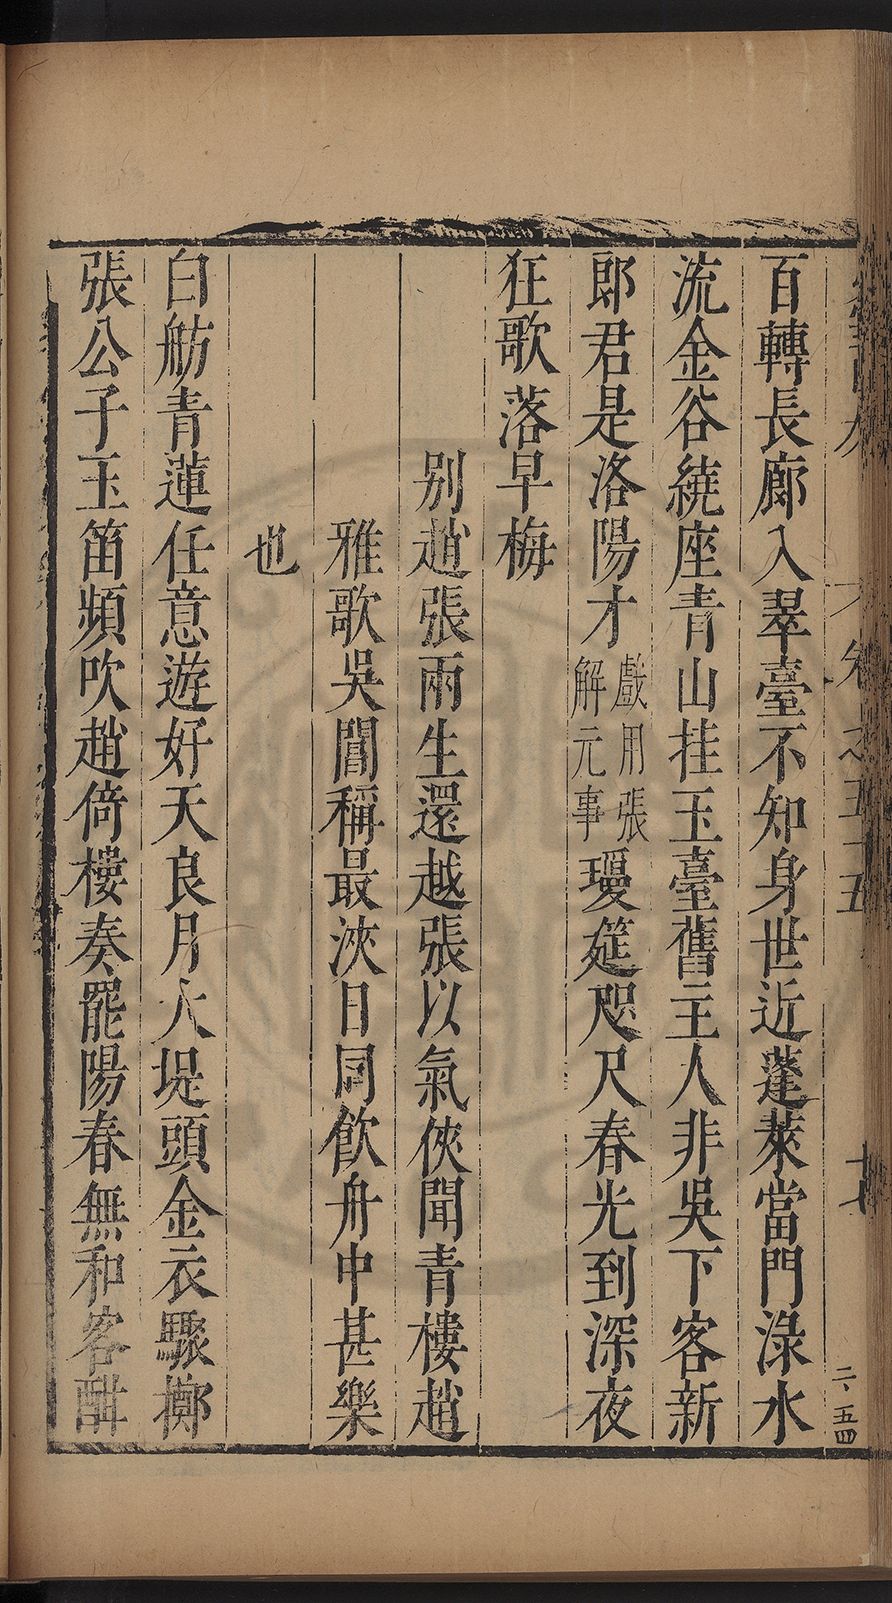 百轉長廊入翠臺不知身世近蓬萊當門淥水
流金谷繞座青山挂玉臺舊主人非吳下客新
郎君是洛陽才戲用張解元事瓊筵咫尺春光到深夜
狂歌落早梅
別趙張兩生還越張以氣俠聞青樓趙
雅歌吳閶稱最浹日同飲舟中甚樂
也
白舫青蓮任意遊好天良月大堤頭金衣驟擲
張公子玉笛頻吹趙倚樓奏罷陽春無和客酣
卷之五十五
二、五四